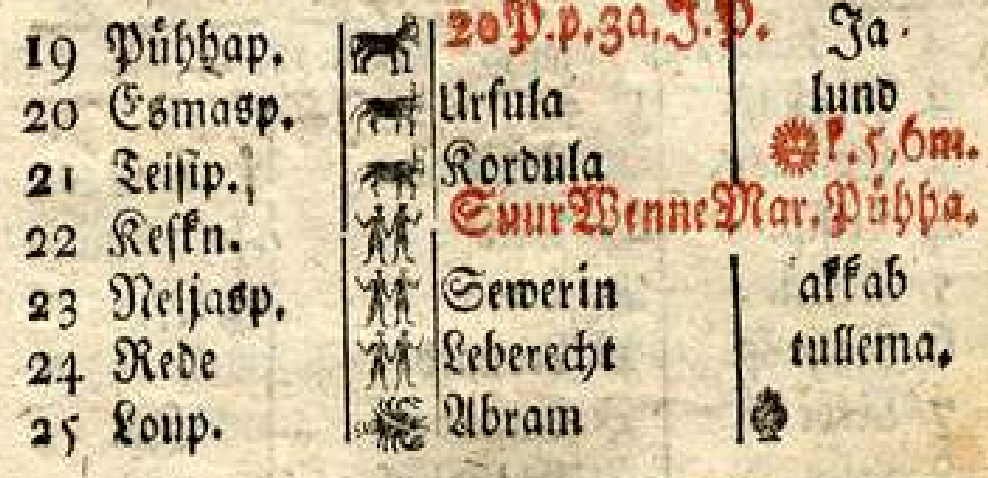 19 Pühhap. 20 P. p. 3a. J. P. Ja
20 Esmasp. Ursula lund
21 Teisip. Kordula k. 5, 6m.
22 Keskn. Suur Wenne Mar. Pühha.
23 Neljasp. Sewerin akkab
24 Rede Leberecht tullema.
25 Loup. Abram